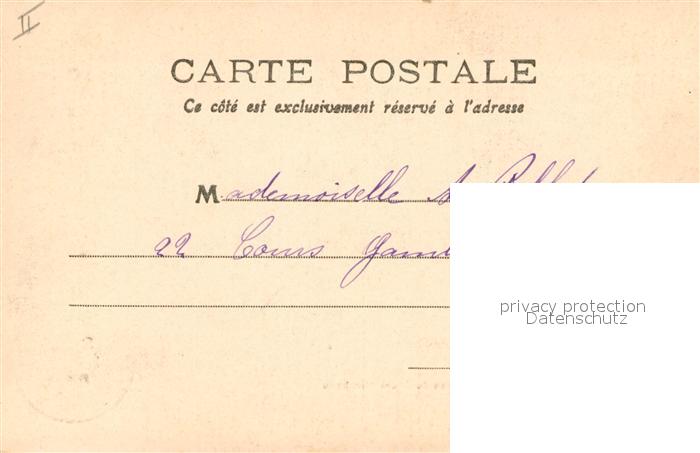 II
CARTE POSTALE
Ce côté est exclusivement réservé à l'adresse
Mademoiselle
22 Cours
privacy protection
Datenschutz